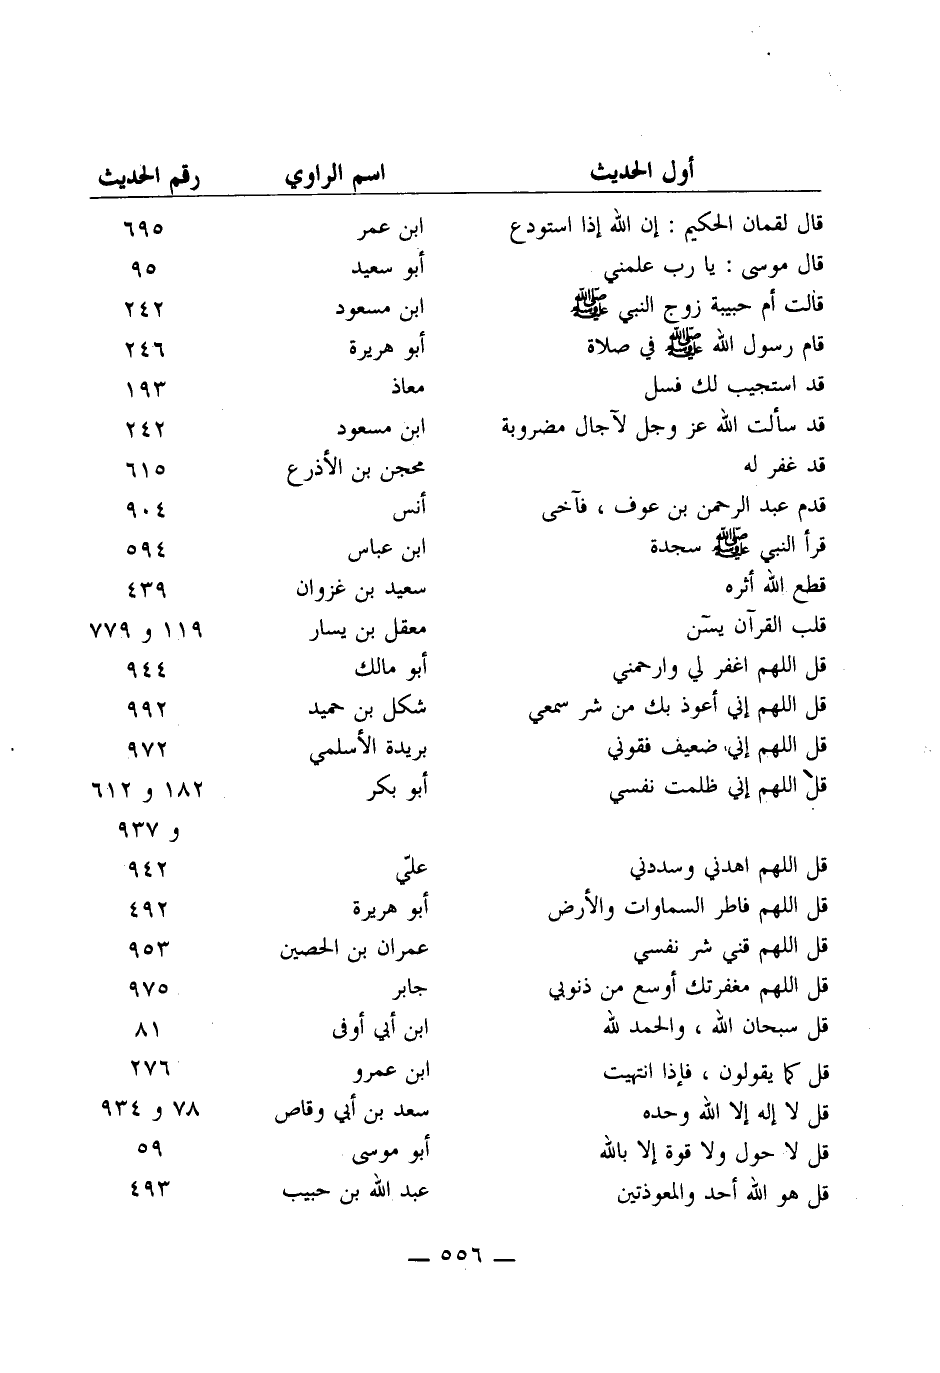 أول الحديث اسم الراوي رقم الحديث
قال لقمان الحكيم : إن الله إذا استودع ابن عمر ٦٩٥
قال موسى : يا رب علمني أبو سعيد ٩٥
قالت أم حبيبة زوج النبي ﷺ ابن مسعود ٢٤٢
قام رسول الله ﷺ في صلاة أبو هريرة ٢٤٦
قد استجيب لك فسل معاذ ١٩٣
قد سألت الله عز وجل لآجال مضروبة ابن مسعود ٢٤٢
قد غفر له محجن بن الأذرع ٦١٥
قدم عبد الرحمن بن عوف ، فآخى أنس ٩٠٤
قرأ النبي ﷺ سجدة ابن عباس ٥٩٤
قطع الله أثره سعيد بن غزوان ٤٣٩
قلب القرآن يسٓن معقل بن يسار ١١٩ و ٧٧٩
قل اللهم اغفر لي وارحمني أبو مالك ٩٤٤
قل اللهم إني أعوذ بك من شر سمعي شكل بن حميد ٩٩٢
قل اللهم إني ضعيف فقوني بريدة الأسلمي ٩٧٢
قل اللهم إني ظلمت نفسي أبو بكر ١٨٢ و ٦١٢
و ٩٣٧
قل اللهم اهدني وسددني عليّ ٩٤٢
قل اللهم فاطر السماوات والأرض أبو هريرة ٤٩٢
قل اللهم قني شر نفسي عمران بن الحصين ٩٥٣
قل اللهم مغفرتك أوسع من ذنوبي جابر ٩٧٥
قل سبحان الله ، والحمد لله ابن أبي أوفى ٨١
قل كما يقولون ، فإذا انتهيت ابن عمرو ٢٧٦
قل لا إله إلا الله وحده سعد بن أبي وقاص ٧٨ و ٩٣٤
قل لا حول ولا قوة إلا بالله أبو موسى ٥٩
قل هو الله أحد والمعوذتين عبد الله بن حبيب ٤٩٣
— ٥٥٦ —